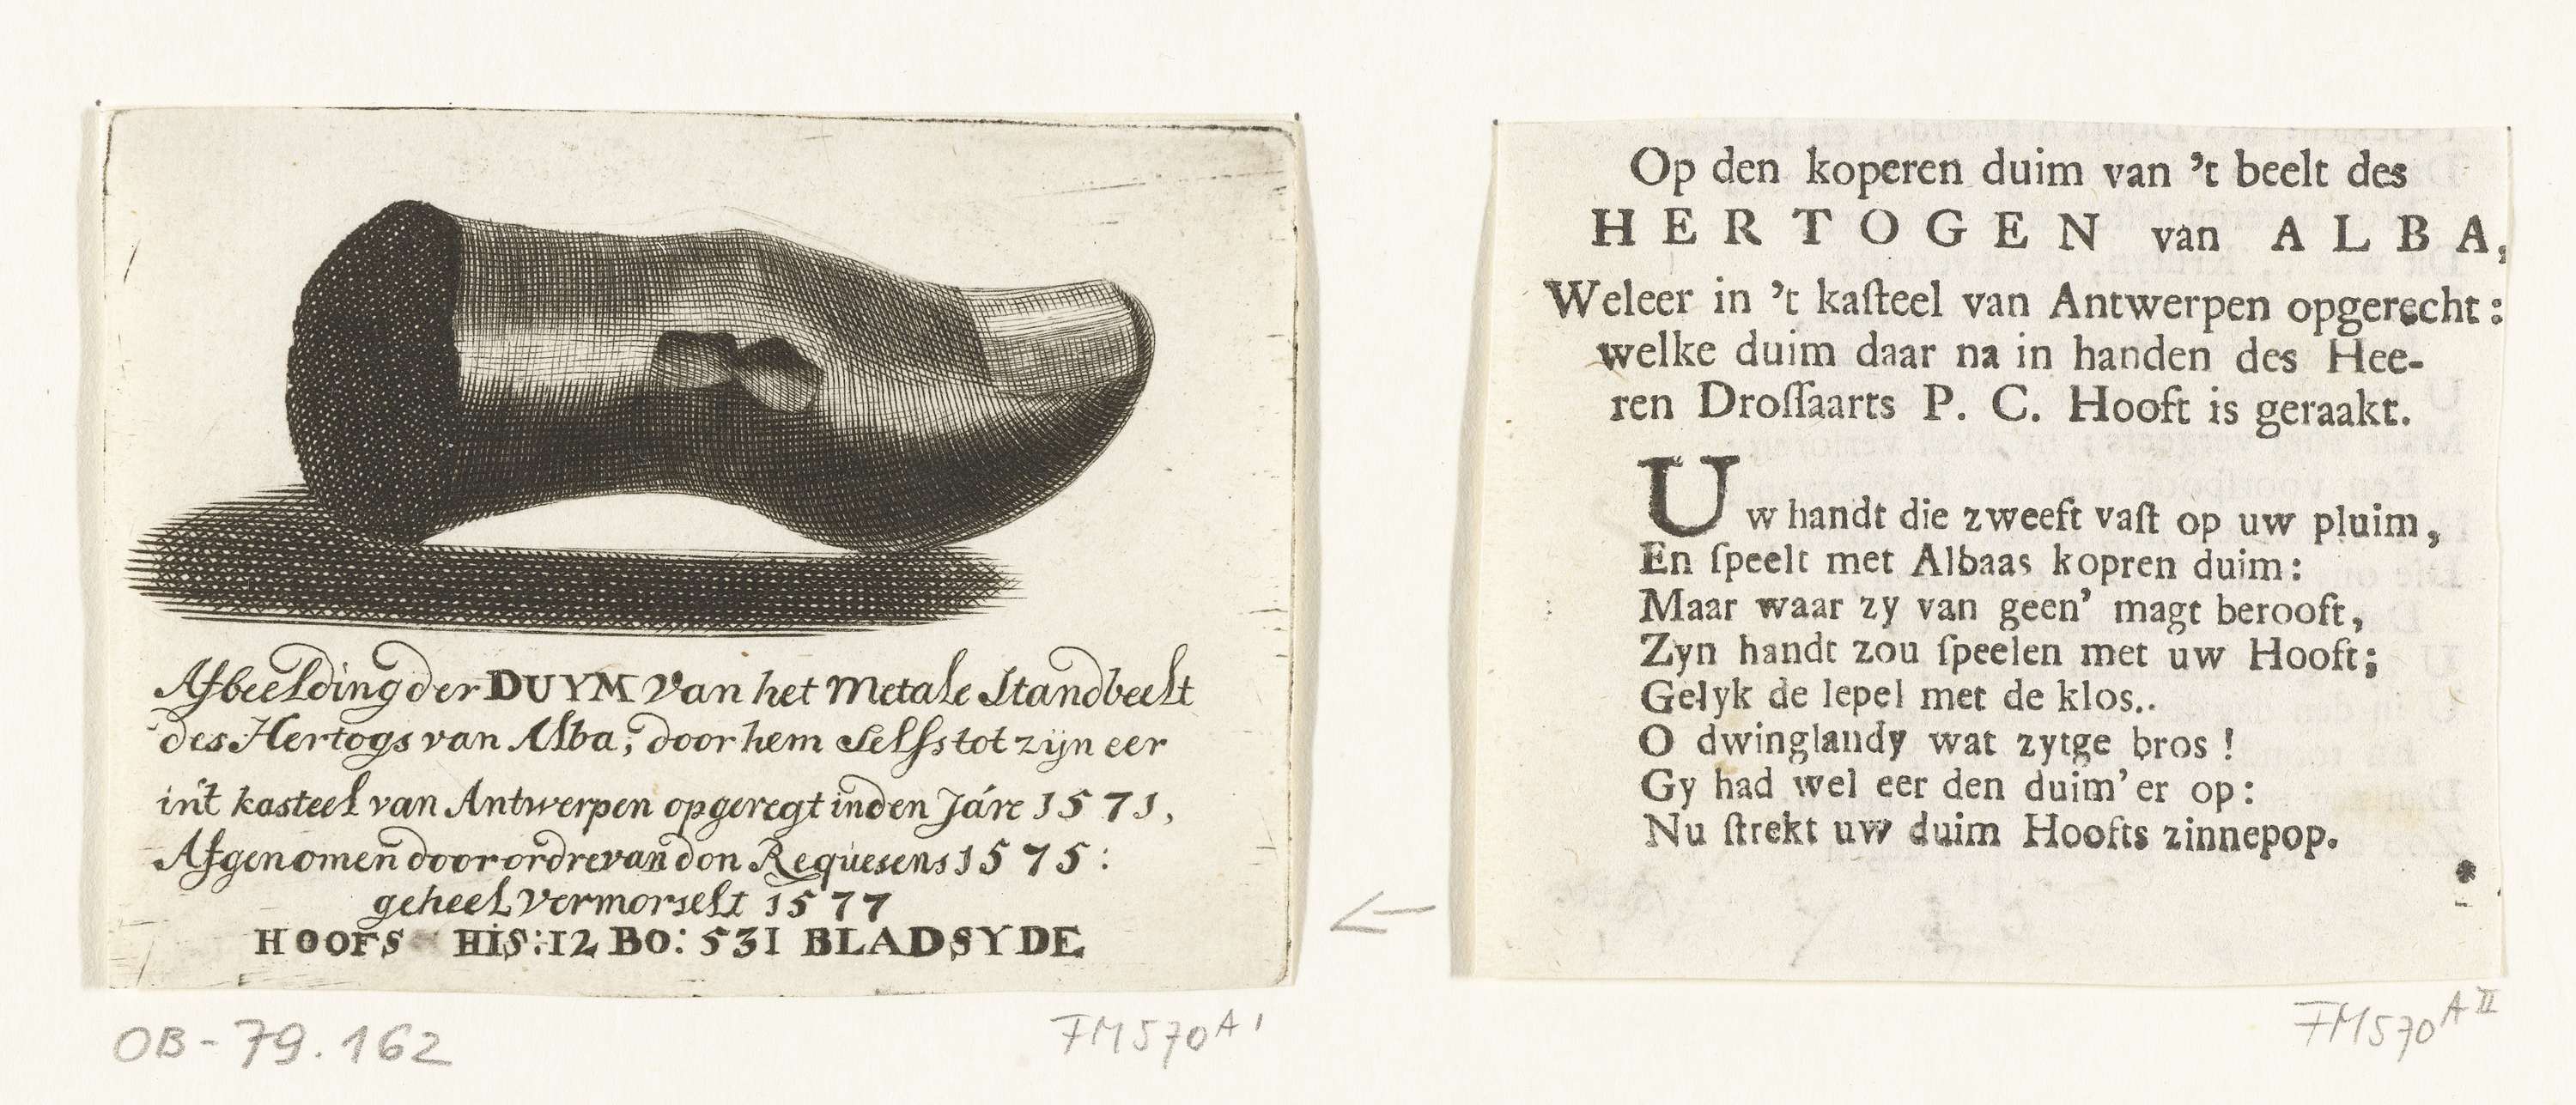 Afbeelding der DUYM van het Metale Standbeelt
des Hertogs van Alba, door hem selfs tot zijn eer
in't kasteel van Antwerpen opgeregt in den Járe 1571,
Afgenomen door ordre van don Requesens 1575:
geheel vermorselt 1577
HOOFS HIS: 12 BO: 531 BLADSYDE
OB-79.162
FM570 A I
Op den koperen duim van 't beelt des
HERTOGEN van ALBA,
Weleer in 't kaſteel van Antwerpen opgerecht:
welke duim daar na in handen des Hee-
ren Droſſaarts P. C. Hooft is geraakt.
Uw handt die zweeft vaſt op uw pluim,
En ſpeelt met Albaas kopren duim:
Maar waar zy van geen' magt berooft,
Zyn handt zou ſpeelen met uw Hooft;
Gelyk de lepel met de klos..
O dwinglandy wat zytge bros!
Gy had wel eer den duim'er op:
Nu ſtrekt uw duim Hoofts zinnepop.
FM570 A II